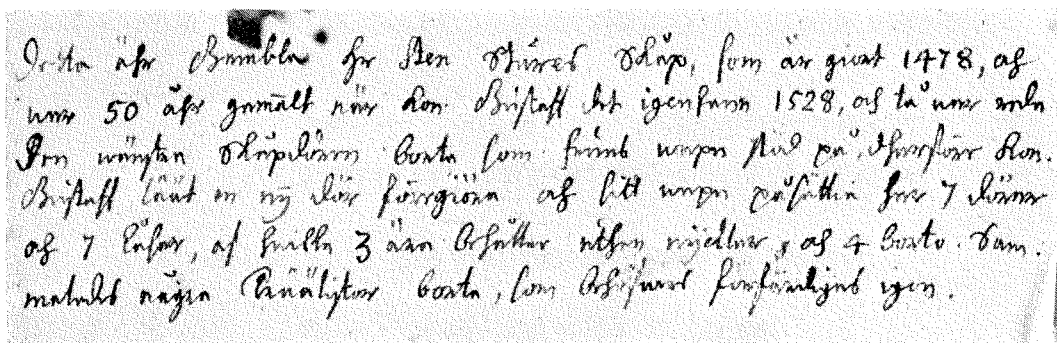 Detta ähr Gambla Hr Sten Stures Skåp, som är giort 1478, och
war 50 åhr gamalt när Kon. Gustaff det igenfann 1528, och tå war reda
den wänstra Skåpdören borta som frus wapn stod på, dherföre Kon.
Gustaff läät en ny dör förrgiöra och sitt wapn påsättia her 7 dörer
och 7 låsar, af huilka 3 ära behåller uthan nycklar, och 4 borto. Sam-
maledes någre borta, som behöfwes förfärdiges igen.